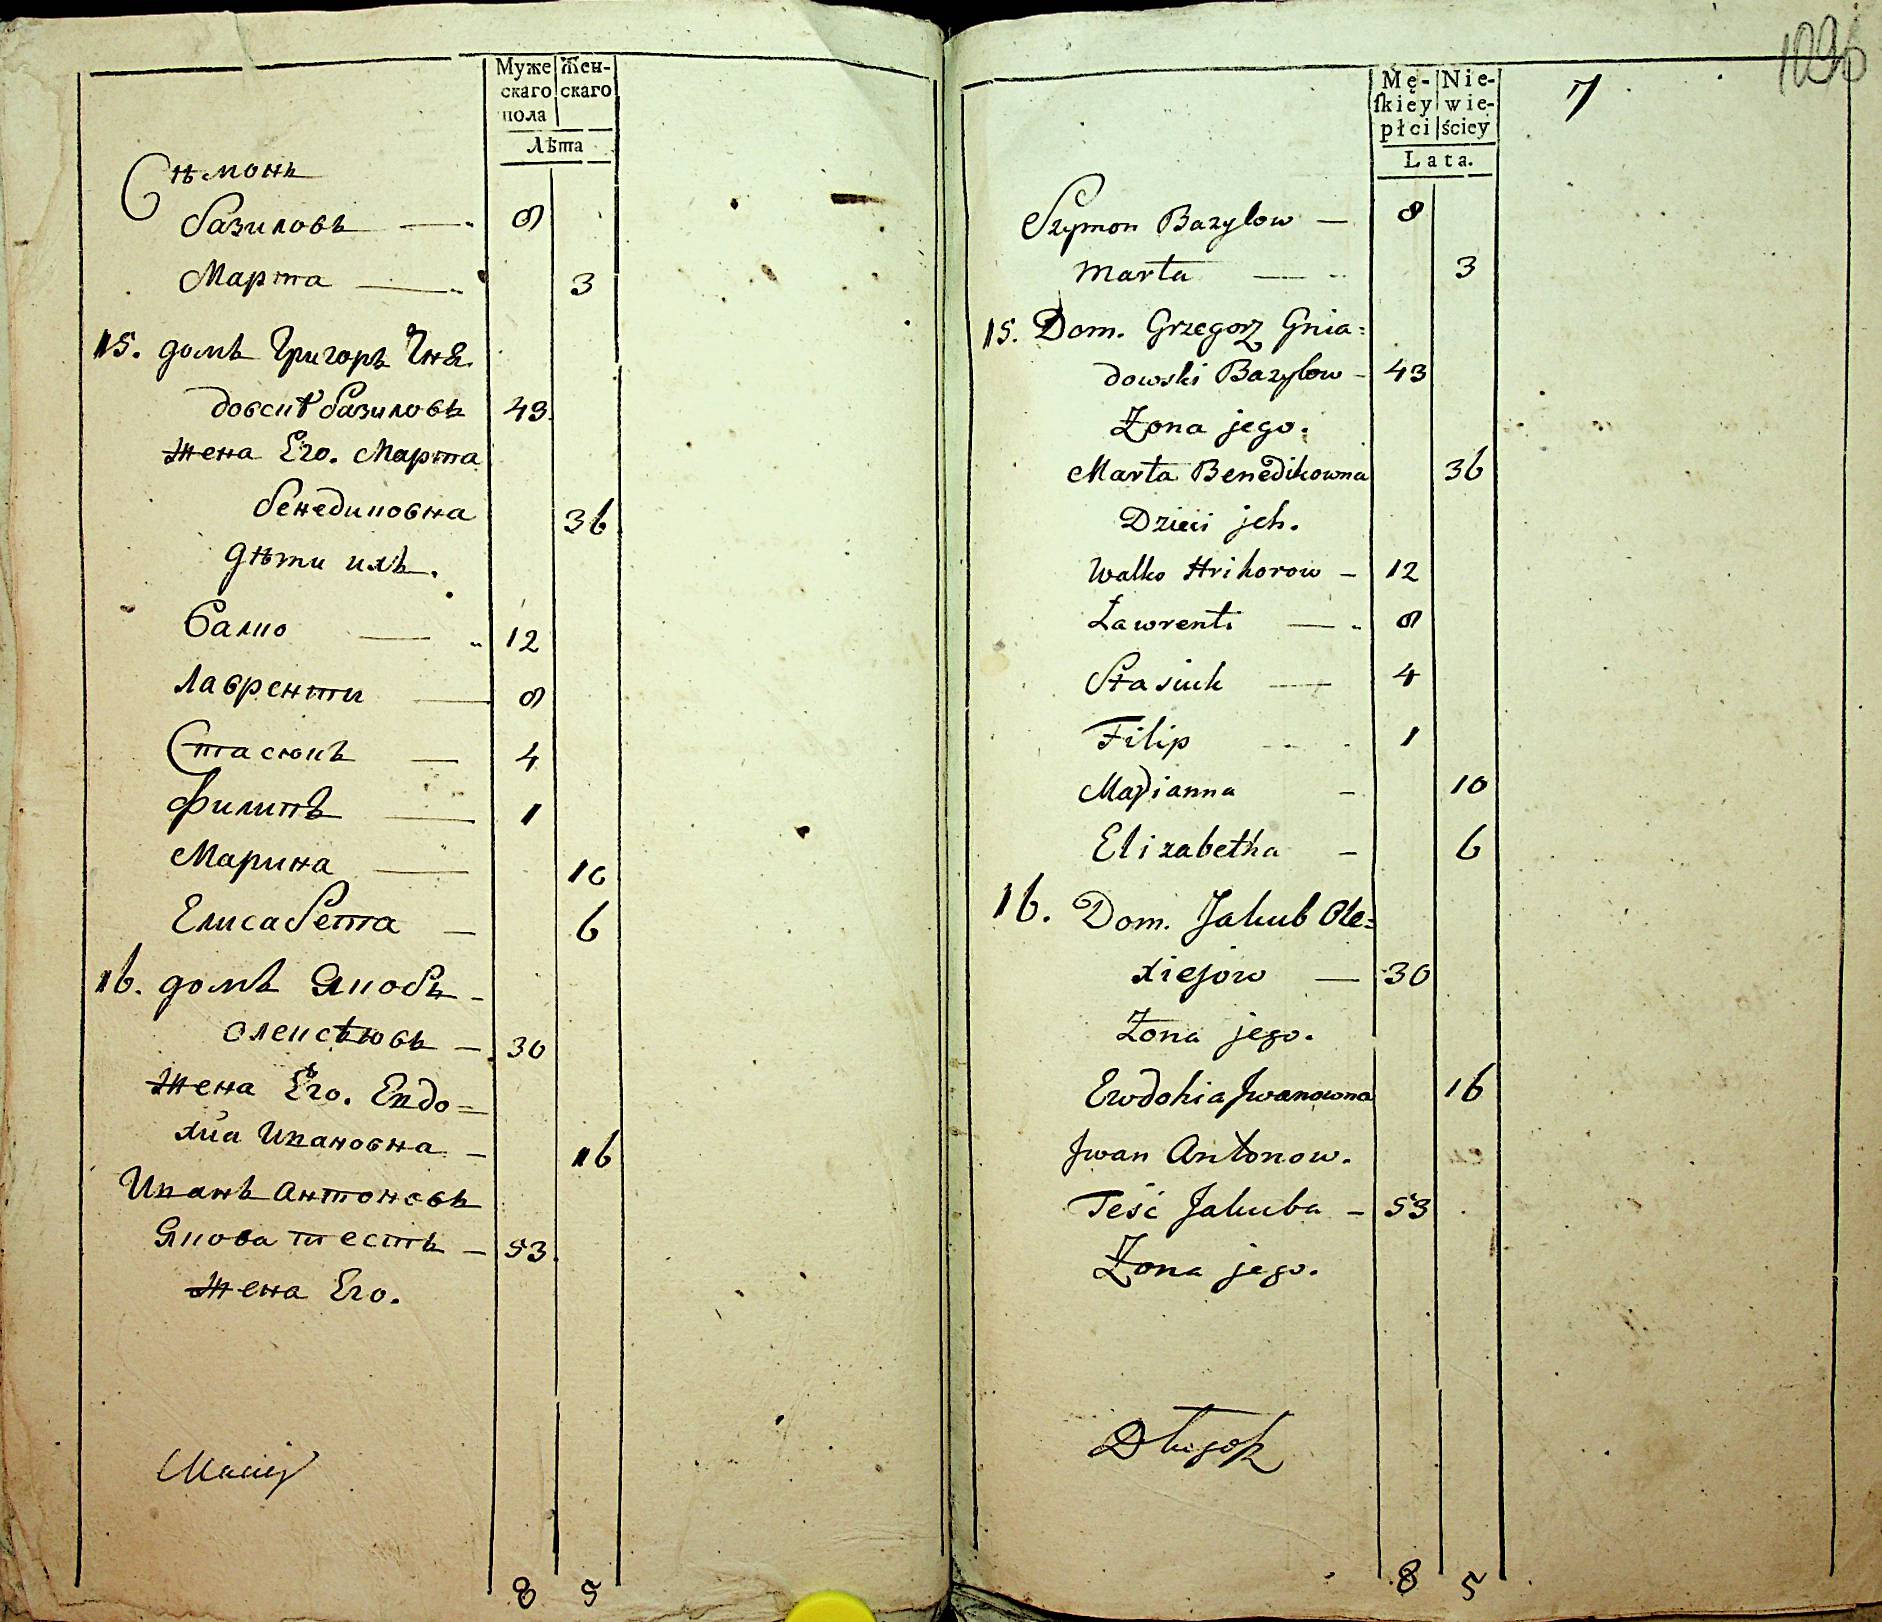 Муже Жен-
скаго скаго
пола
Лѣта
Сѣмонъ
базиловъ — 8
Марта — 3
15. домъ Григоръ Гня
довскі базиловъ 43
Жена Его. Марта
бенедиковна 36
Дѣти ихъ.
Валко — 12
Лавренти — 8
Стасюкъ — 4
Филипъ — 1
Марина — 10
Елисабетта — 6
16. домъ Якобъ -
олексѣювъ — 30
Жена Его. Евдо=
хиа Ивановна — 16
Иванъ антоновъ
Якова тестъ — 53
Жена Его.
Maciey
8 5
1026
7
Mę- Nie-
ſkiey wie-
płci ściey
Lata.
Szymon Bazylow — 8
Marta — 3
15. Dom. Grzegorz Gnia=
dowski Bazylow - 43
Żona jego.
Marta Benedikowna 36
Dzieci jch.
Walko Hrihorow — 12
Ławrenti — 8
Stasiuk — 4
Filip 1
Maryianna — 10
Elizabetha — 6
16. Dom. Jakub Ole=
xiejow — 30
Żona jego.
Ewdokia Jwanowna 16
Jwan Antonow.
Teść Jakuba — 53
Żona jego.
8 5